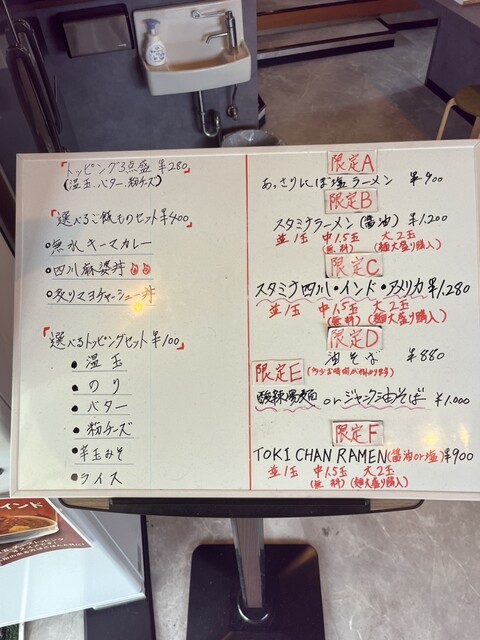 「トッピング3点盛 ¥280」
(温玉、バター、粉チーズ)
「選べるご飯ものセット¥400」
○無水キーマカレー
○四川麻婆丼
○炙りマヨチャーシュー丼
「選べるトッピングセット ¥100」
● 温玉
● のり
● バター
● 粉チーズ
● 辛玉みそ
● ライス
限定A
あっさりにぼ塩ラーメン ¥900
限定B
スタミナラーメン(醤油) ¥1.200
並1玉 中1.5玉 大2玉
(無料) (麺大盛り購入)
限定C
スタミナ四川・インド・アメリカ ¥1.280
並1玉 中1.5玉 大2玉
(無料) (麺大盛り購入)
限定D
油そば ¥880
限定E (少々お時間が掛かります)
酸辣湯麺 or ジャンク油そば ¥1.000
限定F
TOKI CHAN RAMEN(醤油or塩)¥900
並1玉 中1.5玉 大2玉
(無料) (麺大盛り購入)
インド